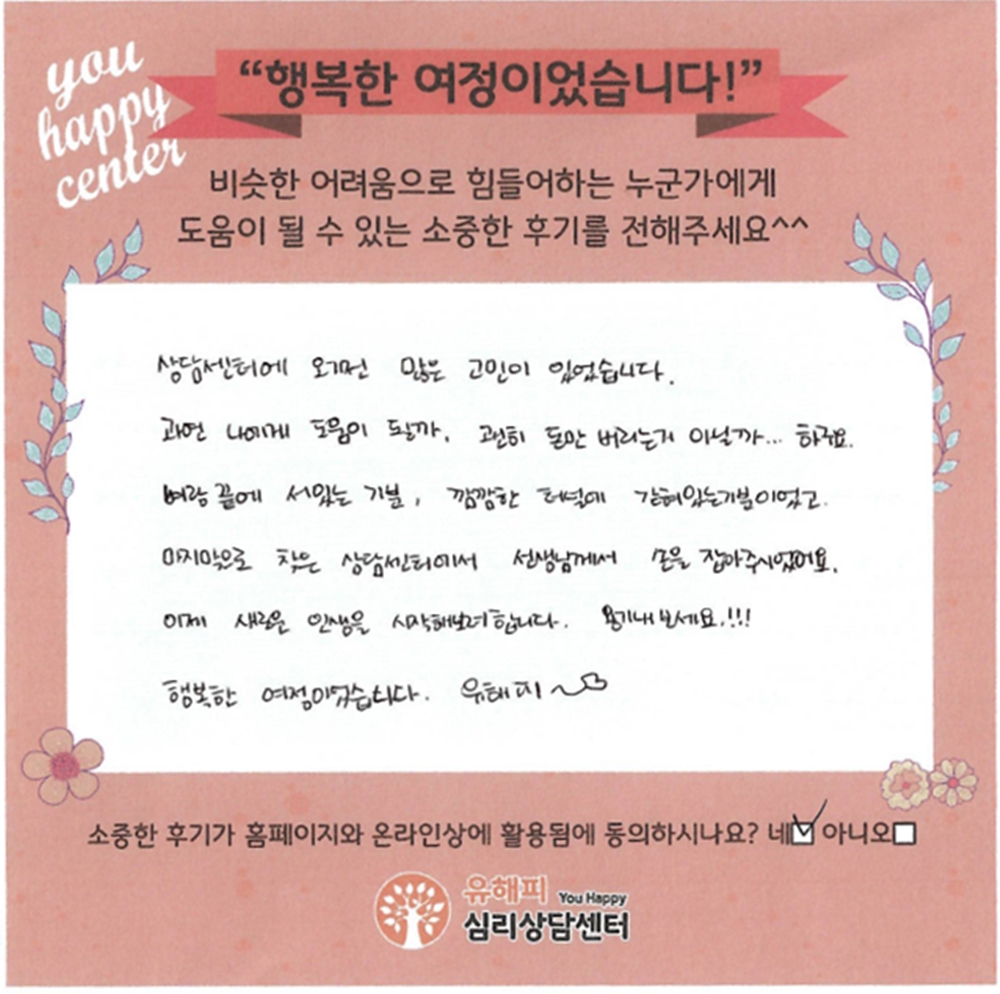 you
happy
center
“행복한 여정이었습니다!”
비슷한 어려움으로 힘들어하는 누군가에게
도움이 될 수 있는 소중한 후기를 전해주세요^^
상담센터에 오기전 많은 고민이 있었습니다.
과연 나에게 도움이 될까, 괜히 돈만 버리는거 아닐까... 하구요.
벼랑 끝에 서있는 기분, 깜깜한 터널에 갇혀있는기분이었고.
마지막으로 찾은 상담센터에서 선생님께서 손을 잡아주시었어요.
이제 새로운 인생을 시작해보려합니다. 용기내보세요.!!!
행복한 여정이었습니다. 유해피~♡
소중한 후기가 홈페이지와 온라인상에 활용됨에 동의하시나요? 네☑ 아니오☐
유해피 You Happy
심리상담센터